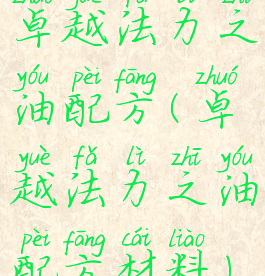 zhuó yuè fǎ lì zhī
卓越法力之
yóu pèi fāng zhuó
油配方(卓
yuè fǎ lì zhī yóu
越法力之油
pèi fāng cái liào
配方材料)